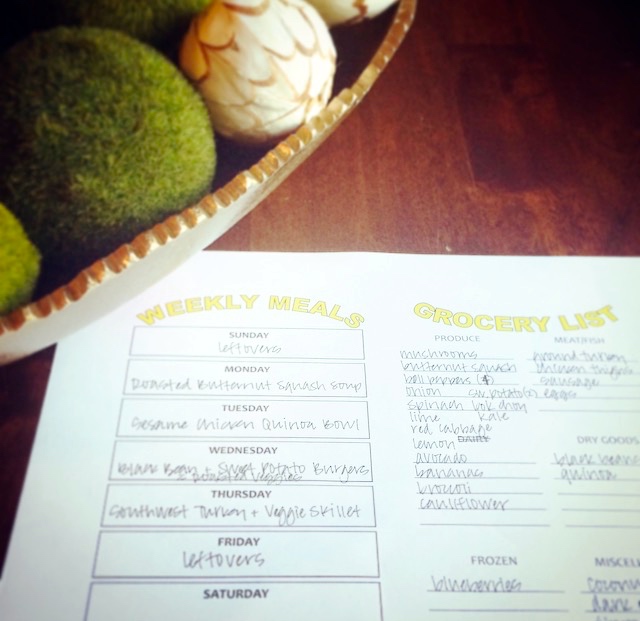 WEEKLY MEALS
SUNDAY
leftovers
MONDAY
Roasted Butternut Squash Soup
TUESDAY
Sesame Chicken Quinoa Bowl
WEDNESDAY
Black Bean + Sweet Potato Burgers
+ Roasted Veggies
THURSDAY
Southwest Turkey + Veggie Skillet
FRIDAY
leftovers
SATURDAY
GROCERY LIST
PRODUCE
mushrooms
butternut squash
bell peppers (4)
onion sw. potato(2)
spinach bok choy
lime kale
red cabbage
lemon DAIRY
avocado
bananas
broccoli
cauliflower
MEAT/FISH
ground turkey
chicken thighs
sausage
eggs
DRY GOODS
black beans
quinoa
FROZEN
blueberries
MISCEL
coconu
dark